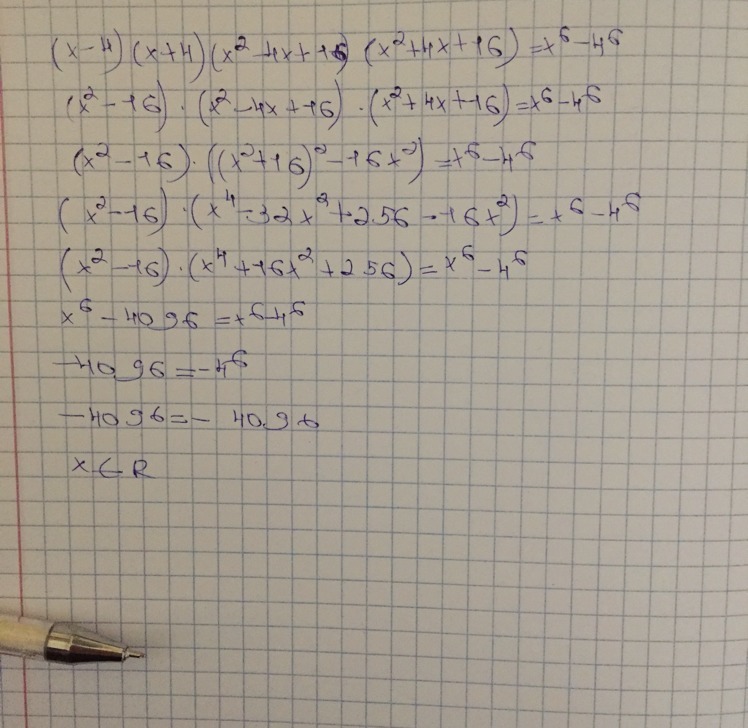 (x-4)(x+4)(x²-4x+16)(x²+4x+16)=x⁶-4⁶
(x²-16)·(x²-4x+16)·(x²+4x+16)=x⁶-4⁶
(x²-16)·((x²+16)²-16x²)=x⁶-4⁶
(x²-16)·(x⁴-32x²+256-16x²)=x⁶-4⁶
(x²-16)·(x⁴+16x²+256)=x⁶-4⁶
x⁶-4096=x⁶-4⁶
-4096=-4⁶
-4096=-4096
x∈R